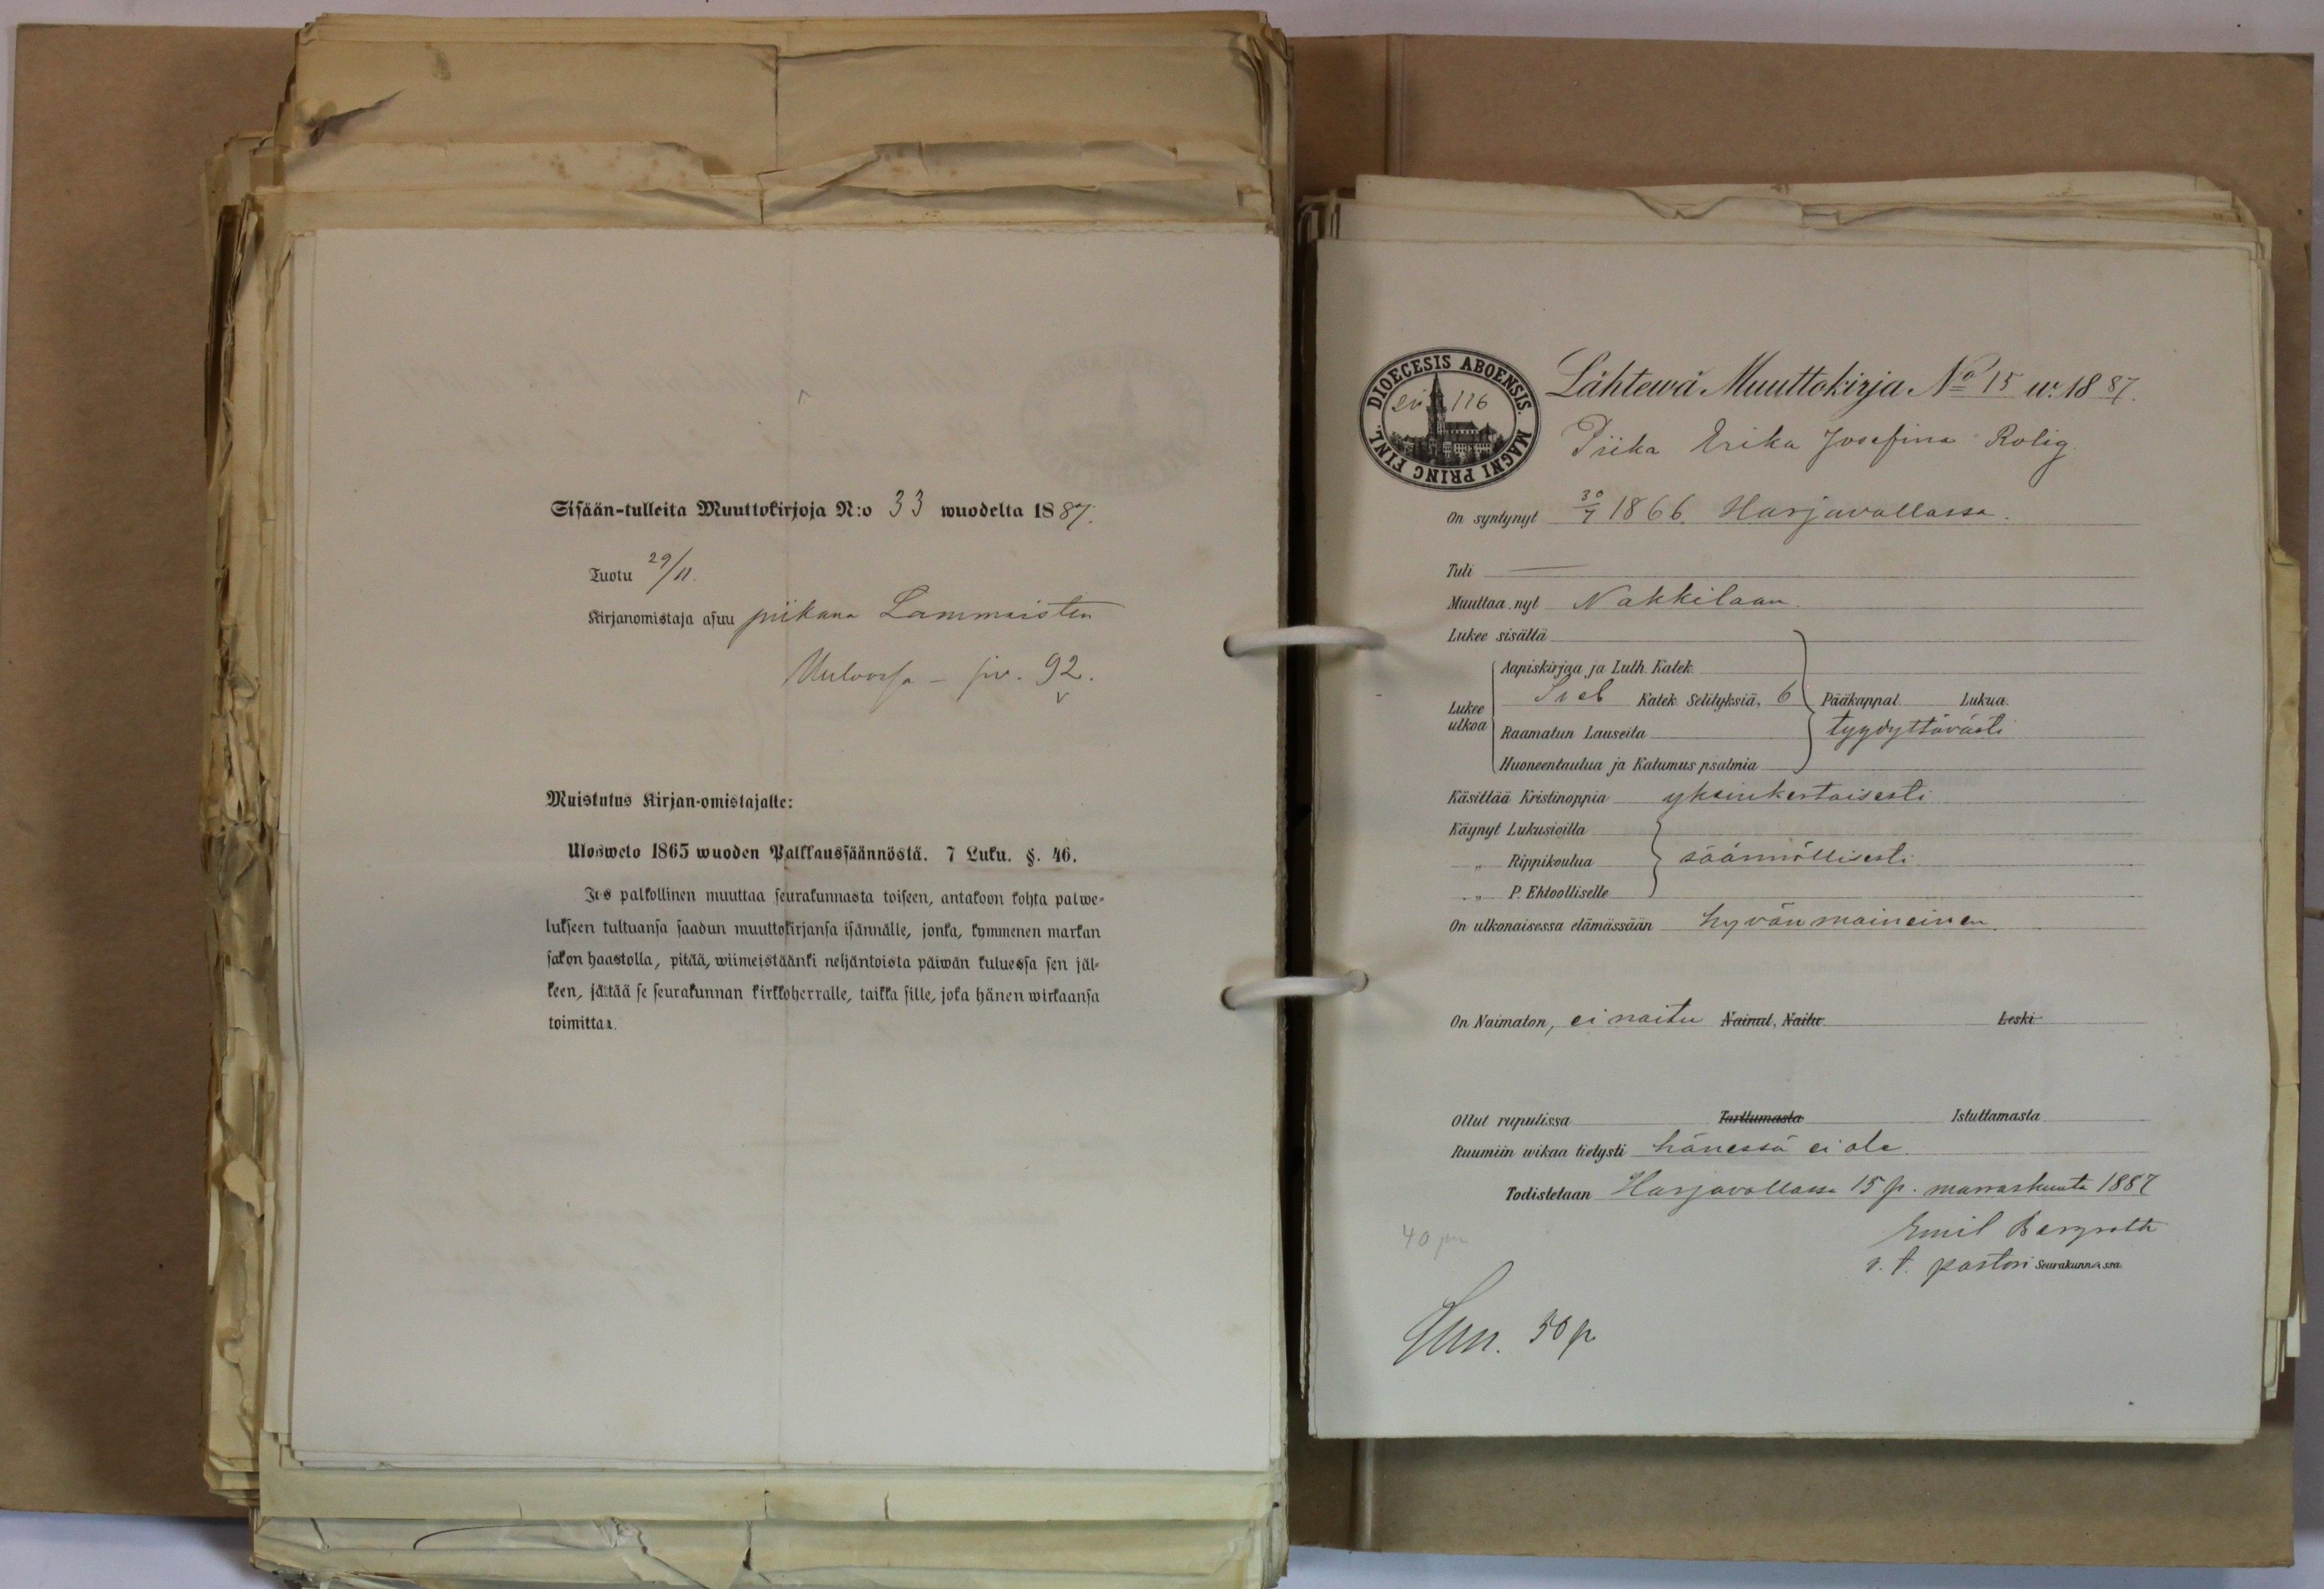 Sisään-tulleita Muuttokirjoja N:o 33 wuodelta 1887.
Tuotu 29/11.
Kirjanomistaja asuu piikana Lammaisten
– siv. 92.
Muistutus Kirjan-omistajalle:
Ulosweto 1865 wuoden Palkkaussäännöstä. 7 Luku. §. 46.
Jos palkollinen muuttaa seurakunnasta toiseen, antakoon kohta palwe-
lukseen tultuansa saadun muuttokirjansa isännälle, jonka, kymmenen markan
sakon haastolla, pitää, wiimeistäänki neljäntoista päiwän kuluessa sen jäl-
keen, jättää se seurakunnan kirkkoherralle, taikka sille, joka hänen wirkaansa
toimittaa.
DIOECESIS ABOENSIS. MAGNI PRINC FINL.
siv 116
Lähtewä Muuttokirja No 15 w. 1887.
Piika Erika Josefina Rolig.
On syntynyt 30/7 1866 Harjavallassa.
Tuli —
Muuttaa nyt Nakkilaan.
Lukee sisältä
Aapiskirjaa ja Luth. Katek.
Lukee ulkoa
Sveb Katek. Selityksiä, 6 Pääkappal. Lukua.
Raamatun Lauseita tyydyttävästi
Huoneentaulua ja Katumus psalmia
Käsittää Kristinoppia yksinkertaisesti
Käynyt Lukusioilla
„ Rippikoulua säännöllisesti
„ P. Ehtoolliselle
On ulkonaisessa elämässään hyvän maineinen.
On Naimaton, ei naitu Nainut, Naitu Leski
Ollut rupulissa Tarttumasta Istuttamasta
Ruumiin wikaa tietysti hänessä ei ole.
Todistetaan Harjavallassa 15 p. marraskuuta 1887
Emil Bergroth
v. t. pastori Seurakunnassa.
40 pn
50 p